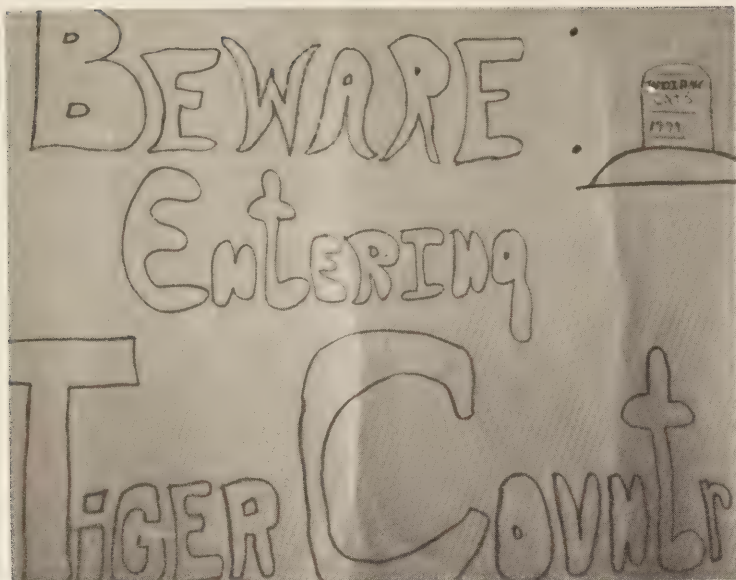 BEWARE:
INDIAN
CATS
1979
EntERINg
TiGER COUNtr